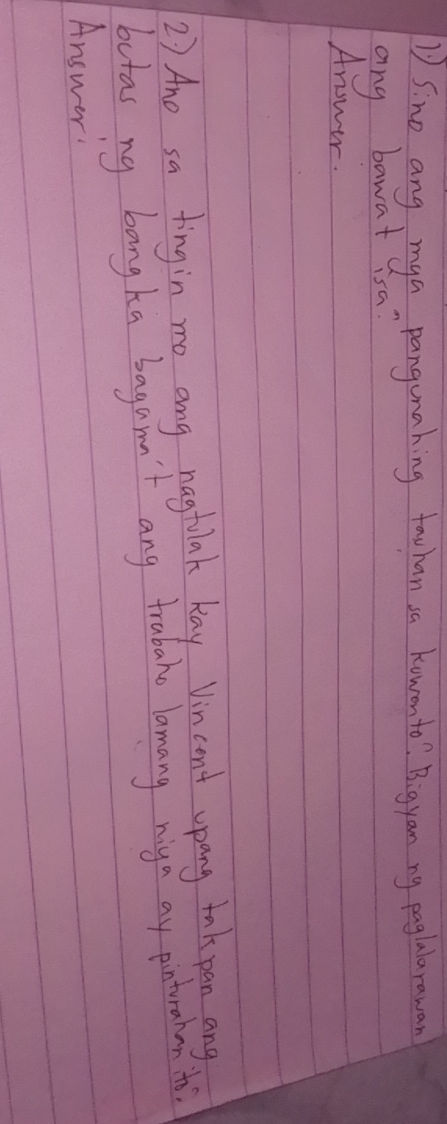 1.) Sino ang mga pangunahing tauhan sa kuwento? Bigyan ng paglalarawan
ang bawat isa.
Answer:
2.) Ano sa tingin mo ang nagtulak kay Vincent upang takpan ang
butas ng bangka bagama't ang trabaho lamang niya ay pinturahan ito?
Answer: